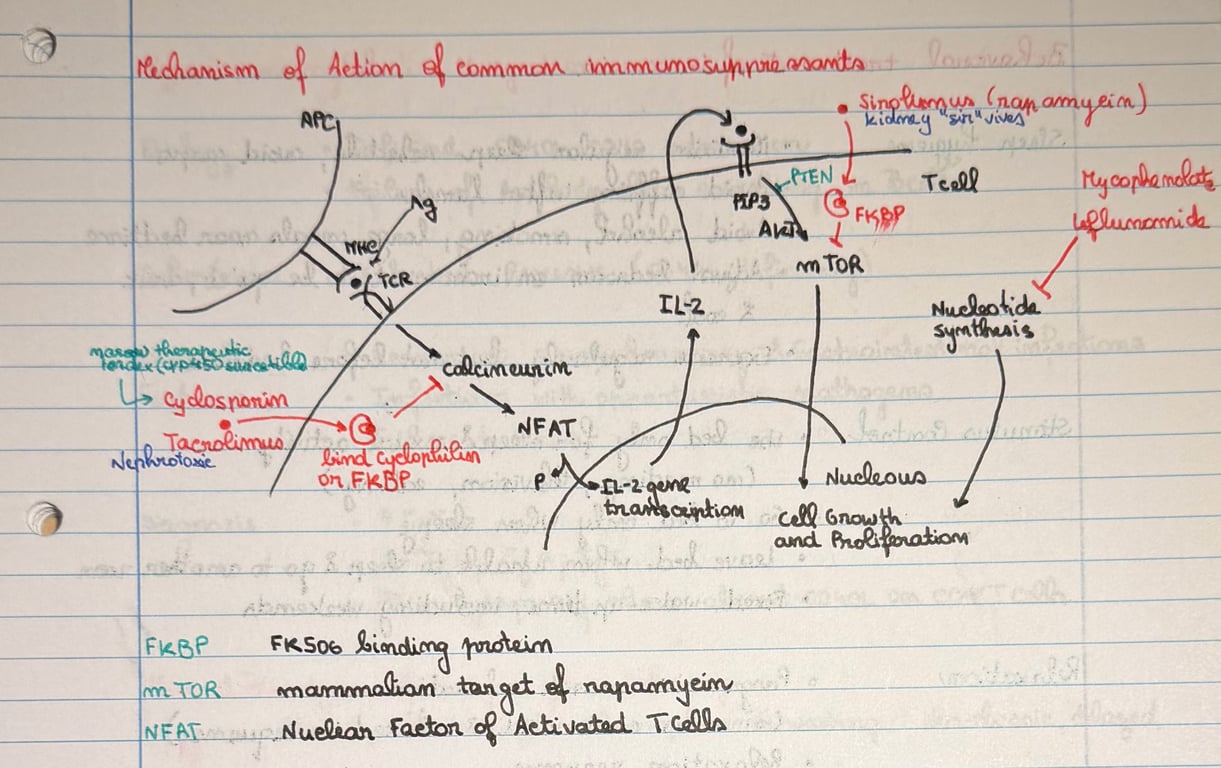 Mechanism of Action of common immunosuppressants
APC
Ag
MHC
TCR
sirolimus (rapamycin)
kidney "sir"vives
PTEN
PIP3
AKT
FKBP
mTOR
T cell
Mycophenolate
leflunomide
Nucleotide
synthesis
IL-2
narrow therapeutic
index (cyp450
calcineurin
cyclosporin
Tacrolimus
Nephrotoxic
bind cyclophilin
or FKBP
NFAT
P
IL-2 gene
transcription
Nucleous
Cell Growth
and Proliferation
FKBP FK506 binding protein
mTOR mammalian target of rapamycin
NFAT Nuclear Factor of Activated T cells